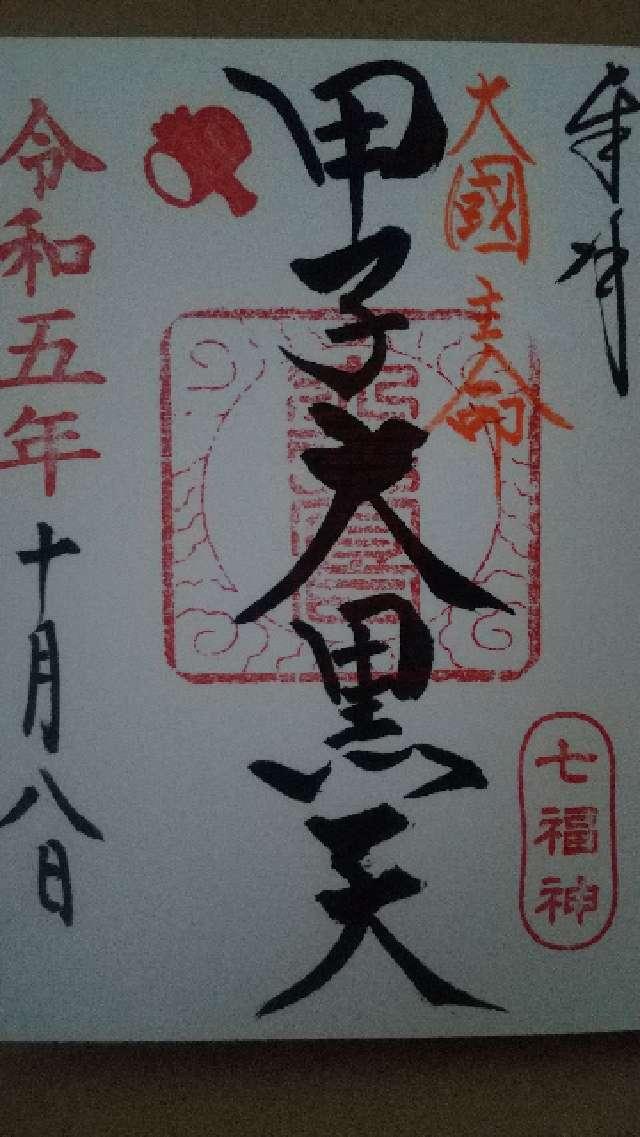 奉拝
大國主命
七福神
甲子大黒天
令和五年
十月八日